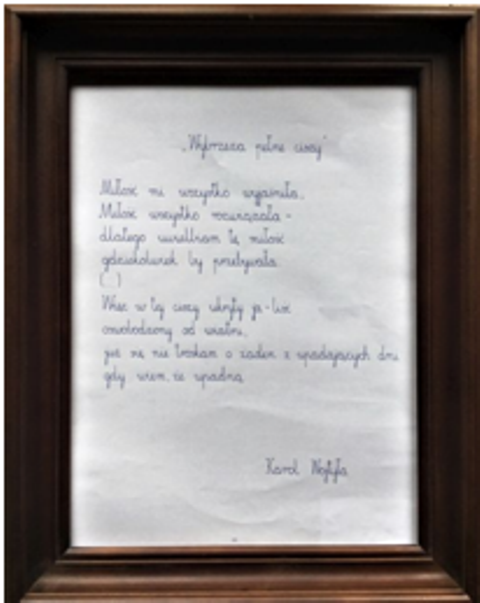 „Wybrzeża pełne ciszy"
Miłość mi wszystko wyjaśniła,
Miłość wszystko rozwiązała -
dlatego uwielbiam tę miłość
gdziekolwiek by przebywała.
(...)
Więc w tej ciszy ukryty ja - liść
oswobodzony od wiatru,
już się nie troskam o żaden z upadających dni
gdy wiem, że upadną.
Karol Wojtyła